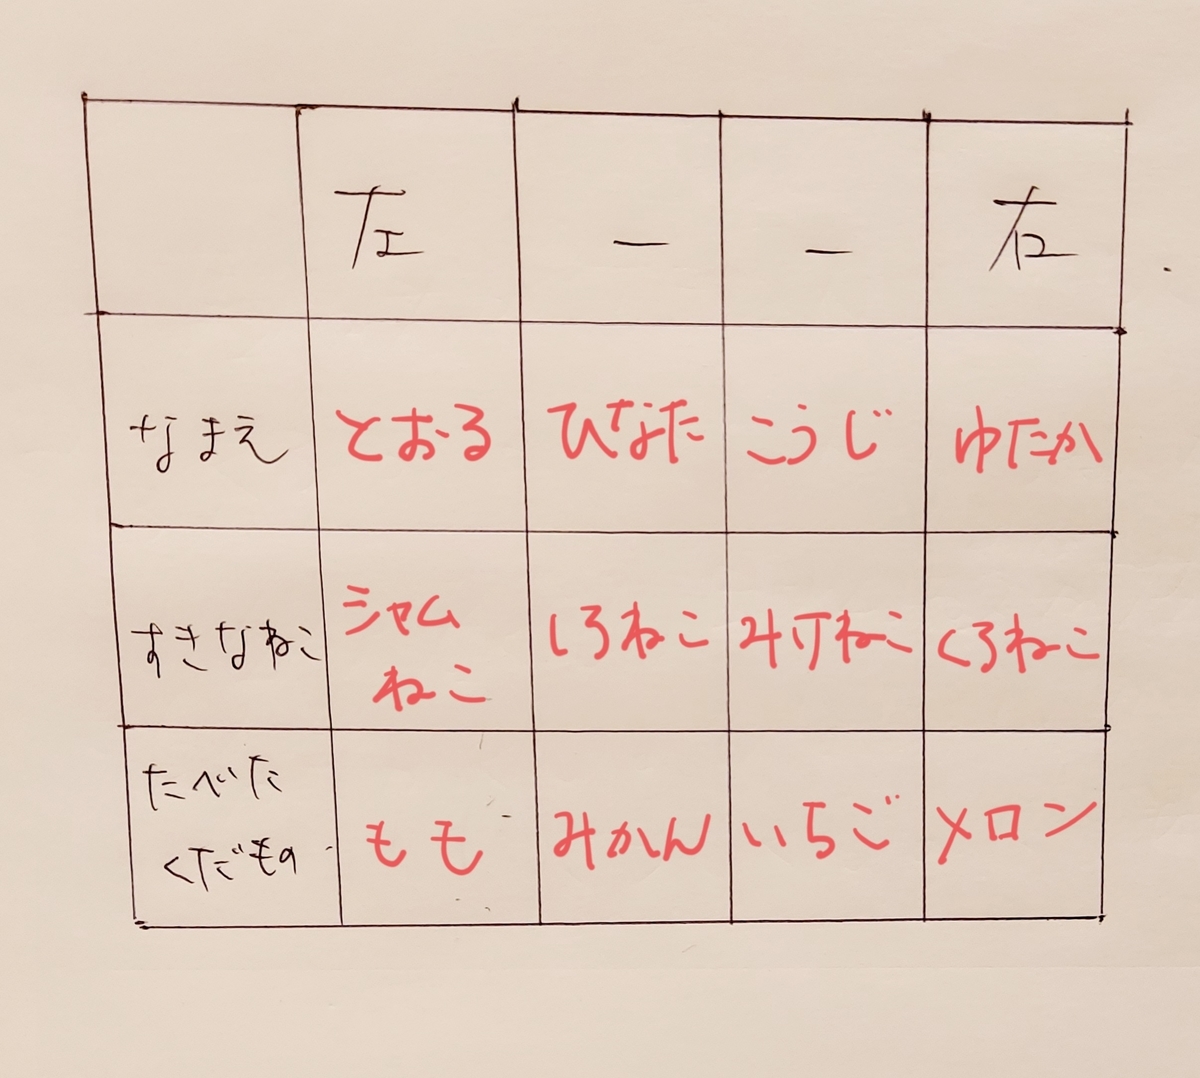 左 ー ー 右
なまえ とおる ひなた こうじ ゆたか
すきなねこ シャム ねこ しろねこ みけねこ くろねこ
たべた くだもの もも みかん いちご メロン